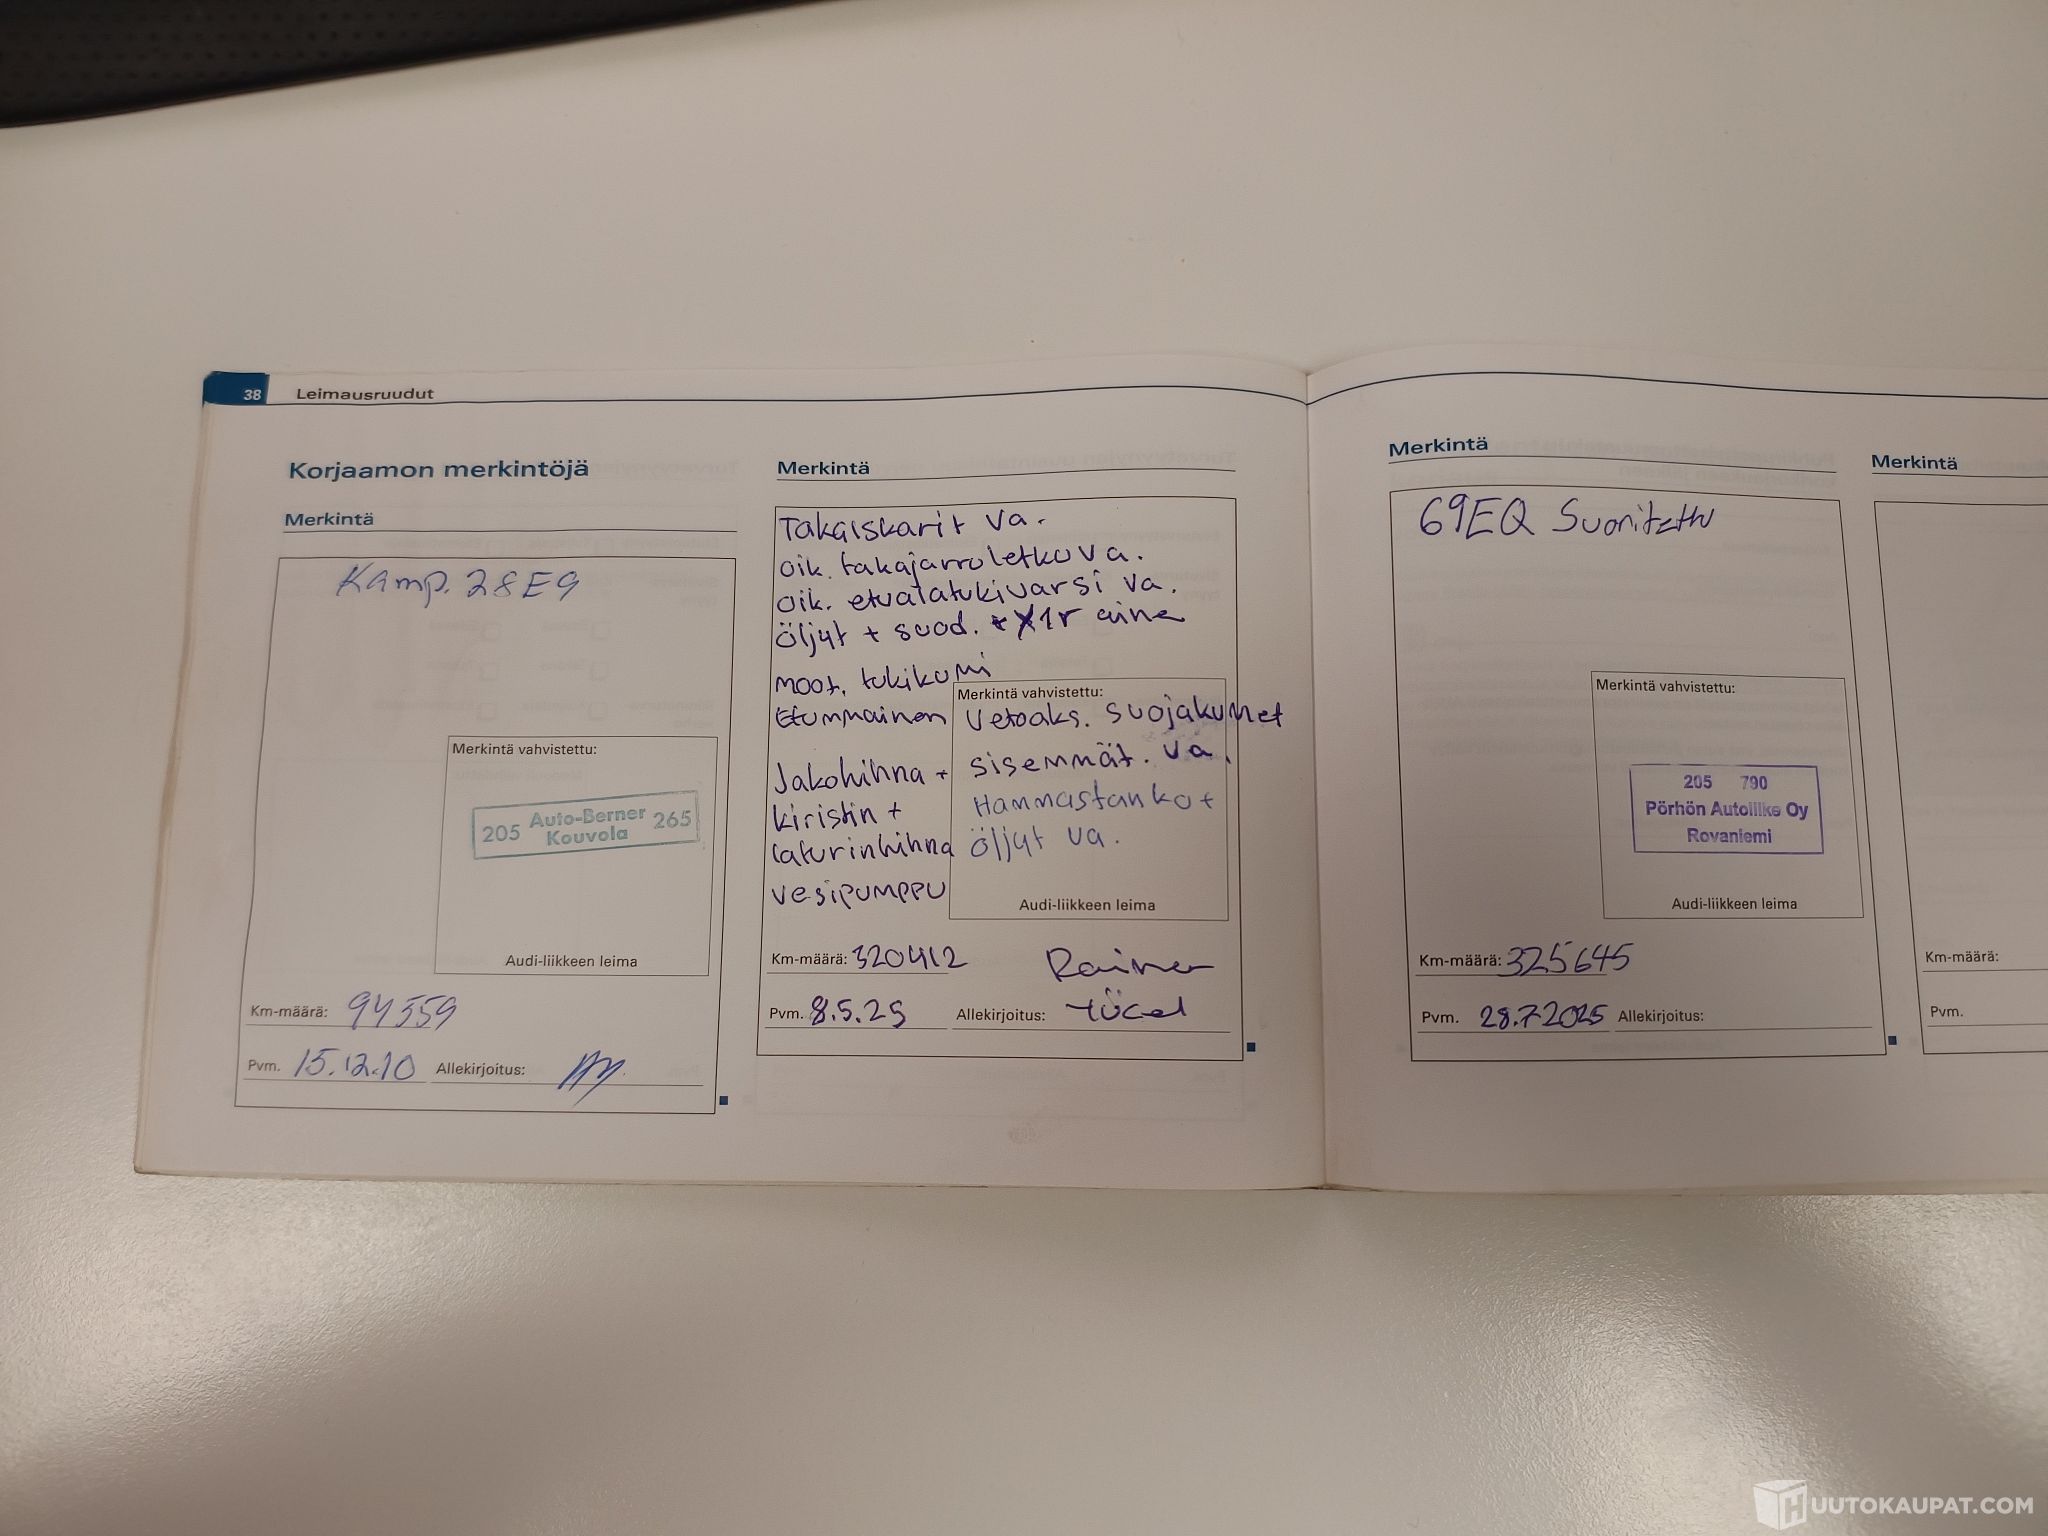 38 Leimausruudut
Korjaamon merkintöjä
Merkintä
Kamp. 28E9
Merkintä vahvistettu:
205 Auto-Berner 265
Kouvola
Audi-liikkeen leima
Km-määrä: 94559
Pvm. 15.12.10 Allekirjoitus:
Merkintä
Takaiskarit va.
oik. takajarruletku va.
oik. etualatukivarsi va.
öljyt + suod. + 1r aine
moot. tukikumi
Etummainen
Jakohihna +
kiristin +
laturinhihna
vesipumppu
Merkintä vahvistettu:
Vetoaks. suojakumet
sisemmät. va.
Hammastanko +
öljyt va.
Audi-liikkeen leima
Km-määrä: 320412
Pvm. 8.5.25 Allekirjoitus:
Merkintä
69EQ Suoritettu
Merkintä vahvistettu:
205 790
Pörhön Autoliike Oy
Rovaniemi
Audi-liikkeen leima
Km-määrä: 325645
Pvm. 28.7.2025 Allekirjoitus:
Merkintä
Km-määrä:
Pvm.
HUUTOKAUPAT.COM